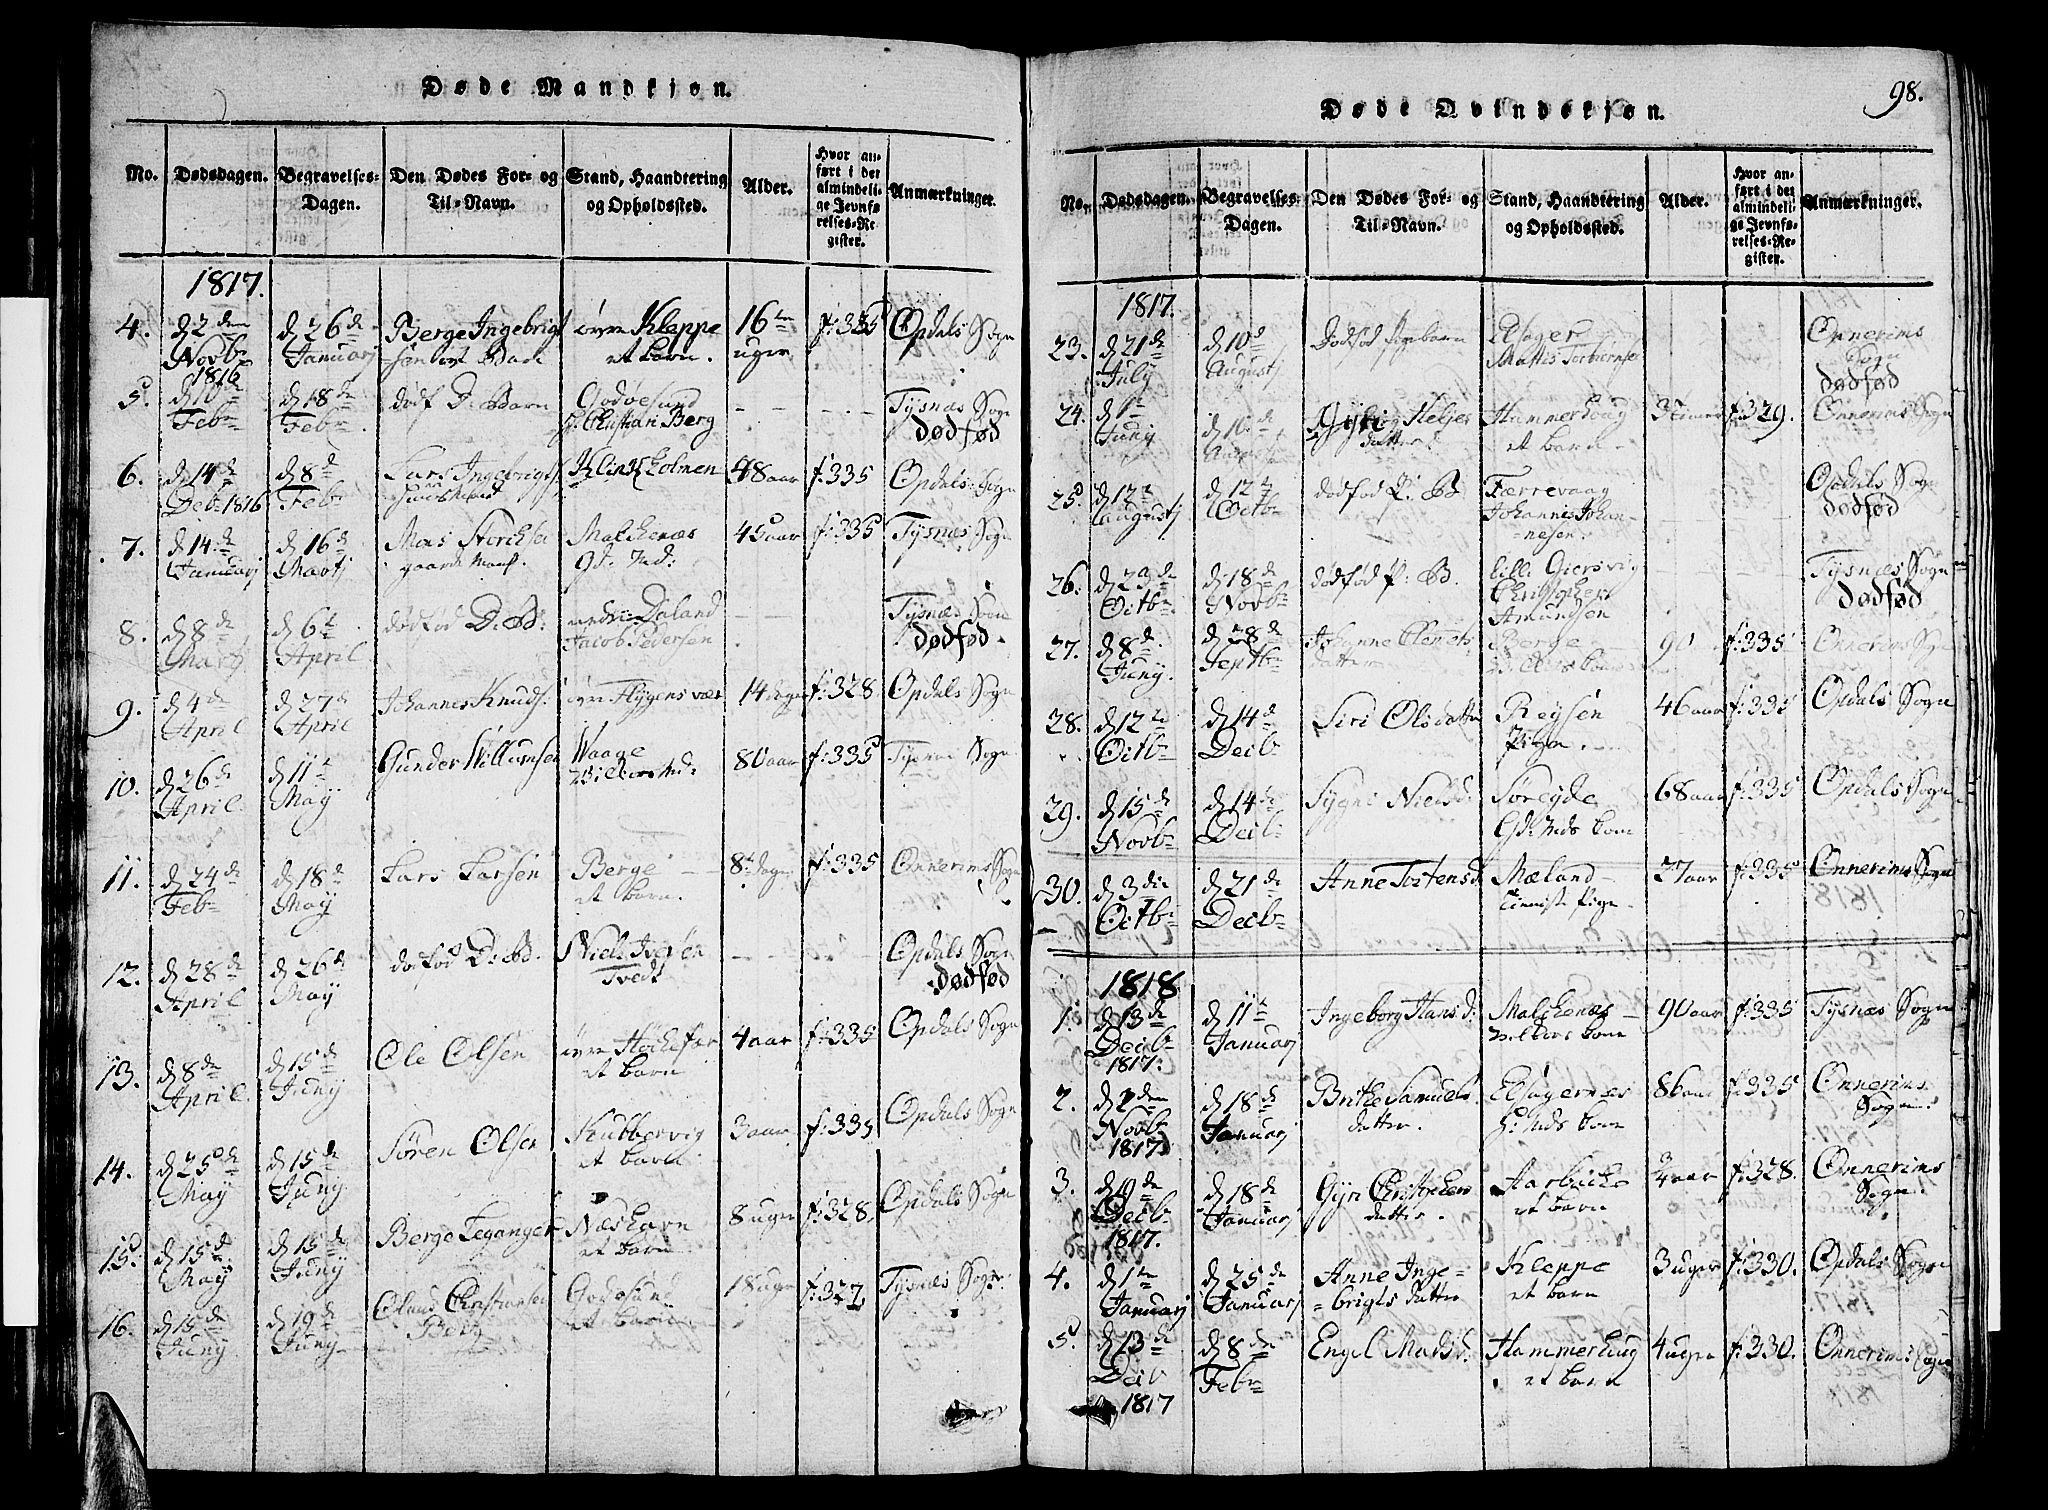 98.
Døde Mandkjøn.
No. Dødsdagen. Begravelses-Dagen. Den Dødes For- og Til-Navn. Stand, Haandtering og Opholdssted. Alder. Hvor anført i det almindelige Jevnførelses-Register. Anmærkninger.
1817.
4. d 2den Novbr 1816 d 26de Januarj Berge Ingebrigtsøn Kleppe et barn. 16 uger f: 335 Opdals Sogn
5. d 10de Febr d 18de Febr dødf D: Barn Godøesund Christian Berg Tysnæs Sogn dødfød
6. d 14de Debr 1816 d 8de Febr Lars Ingebrigts. Klinkholmen 48 aar f: 335 Opdals Sogn
7. d 14de Januarj d 16de Martj Mons Malchenæs 45 aar f: 335 Tysnæs Sogn
8. d 8de Martj d 6te April dødfød D: B: nedre Daland Jacob Pedersen Tysnæs Sogn dødfød
9. d 4de April d 27de April Johannes Knuds. Flygensvær 14 dager f: 328 Opdals Sogn
10. d 26de April d 11te May Gunder Willumsen Waage 80 aar f: 335 Tysnæs Sogn
11. d 24de Febr d 18de May Lars Larsen Berge et barn. 8te dage f: 335 Onnerims Sogn
12. d 28de April d 26de May dødfød D: B. Niels Iversen Tvedt Opdals Sogn dødfød
13. d 8de April d 15de Juny Ole Olsen et barn 4 aar f: 335 Opdals Sogn
14. d 25de May d 15de Juny Søren Olsen Skubbervig et barn 3 aar f: 335 Opdals Sogn
15. d 15de May d 15de Juny Berge Leganger Næshavn et barn 8 uger f: 328. Opdals Sogn
16. d 15de Juny d 19de Juny Olaus Christiansen Berg Godøsund et barn 18 uger f: 327. Tysnæs Sogn.
Døde Qvindekjøn.
No. Dødsdagen. Begravelses-Dagen. Den Dødes For- og Til-Navn. Stand, Haandtering og Opholdssted. Alder. Hvor anført i det almindelige Jevnførelses-Register. Anmærkninger.
1817.
23. d 21de July d 10de Augustj dødfød Pigebarn Elsager Mattis Torbiørnse Onnerims Sogn dødfød
24. d 1te Juny d 10de Helje datter Hammerhoug et barn f: 329. Onnerims Sogn
25. d 12te Augustj d 12te Octbr dødfød P: B Færrevaag Johannes Johannesen. Opdals Sogn dødfød
26. d 29de Octbr d 18de Novbr dødfød P: B. lille Giersvig Christopher Amundsen Tysnæs Sogn dødfød
27. d 8de Juny. d 28de Septbr Johanne Clemets datter Berge 90 f: 335 Onnerims Sogn
28. d 12te Octbr d 14de Decbr Siri Olsdatter Reysen Pige. 46 aar f: 335 Opdals Sogn
29. d 15de Novbr d 14de Decbr Sygni Nielsd: Søreyde 68 aar f: 335 Opdals Sogn
30. d 3die Octbr d 21de Decbr Anne Tostensd. Mæland Pige. 27 aar f: 335 Onnerims Sogn
1818
1. d 13de Decbr 1817. d 11te Januarj Ingeborg Hansd: Malchenæs 90 aar f: 335 Tysnæs Sogn
2. d 2den Novbr 1817 d 18de Januarj Brithe Samuels datter. Elsagernes 86 aar f: 335 Onnerims Sogn.
3. d 19de Decbr 1817. d 18de Januarj Gyri Christophers datter. et barn aar f: 328. Onnerims Sogn.
4. d 1te Januarj d 25de Januarj Anne Ingebrigts datter Kleppe et barn 3 uger f: 330. Opdals Sogn
5. d 13de Decbr 1817 d 8de Febr Engel Madsd. Hammerhaug et barn 4 uger f: 330. Onnerims Sogn